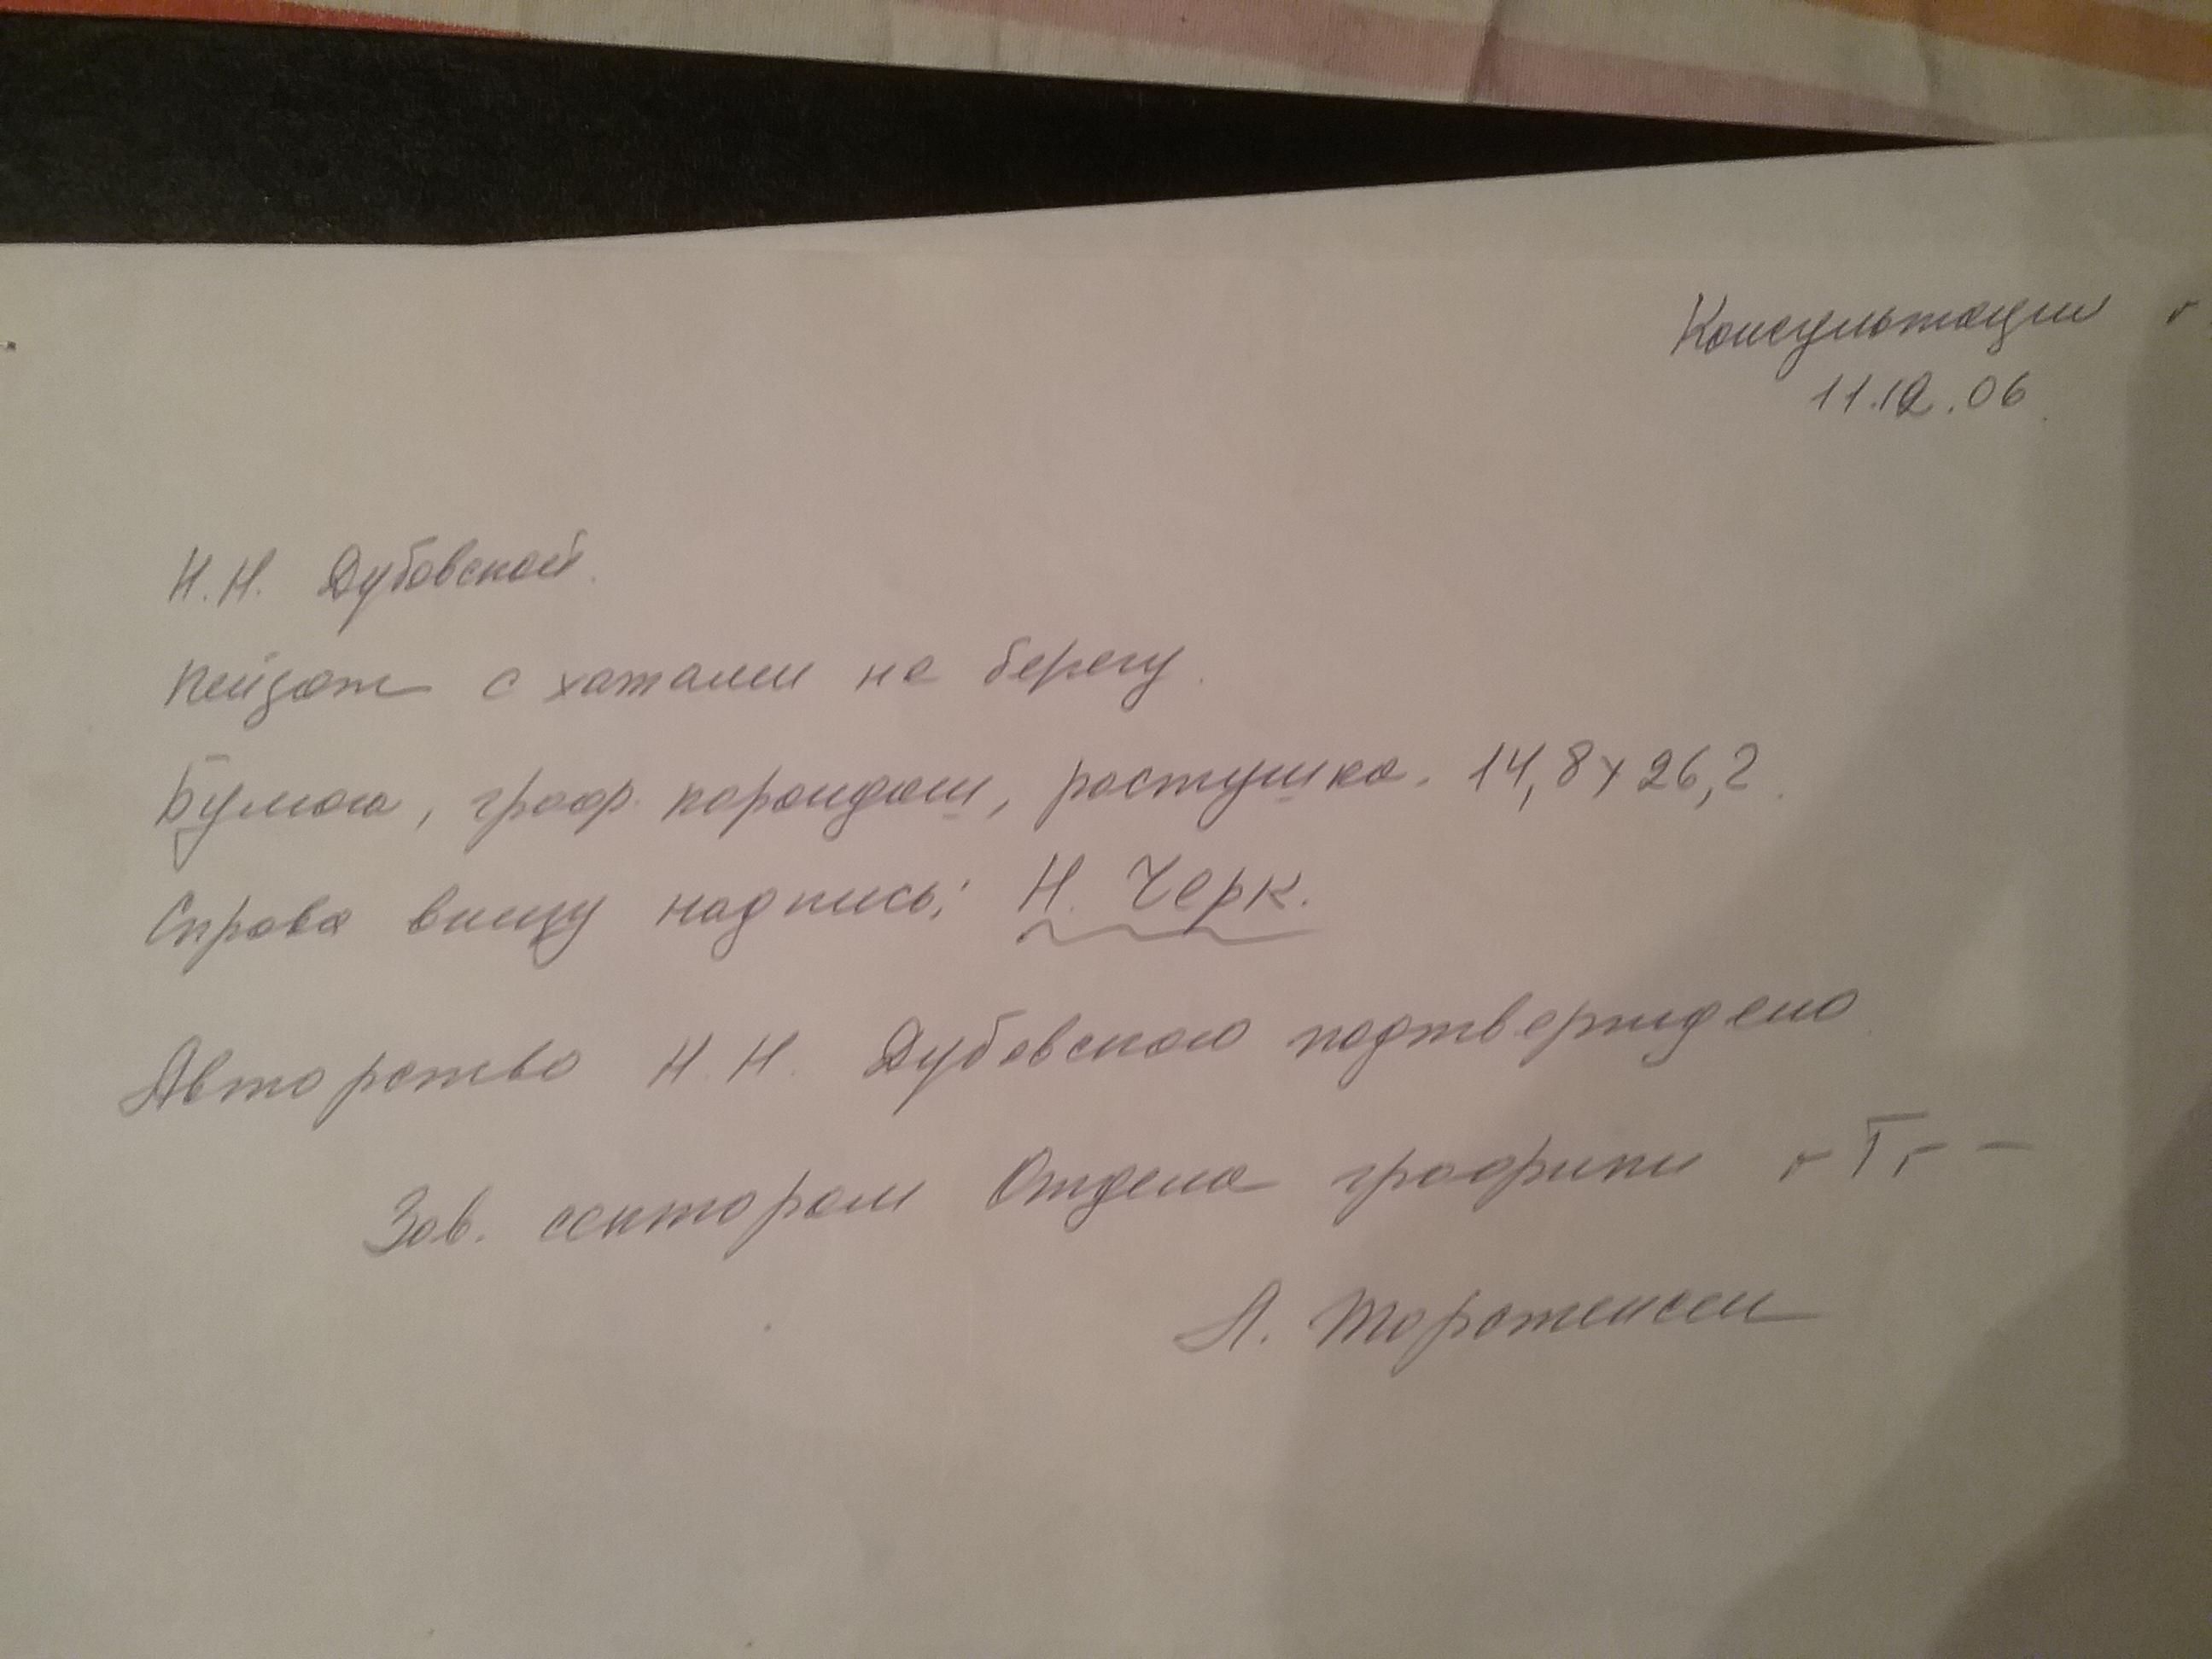 Консультации
11.12.06
Н.Н. Дубовской.
Пейзаж с хатами на берегу.
Бумага, граф. карандаш, растушка. 14,8 x 26,2.
Справа внизу надпись: Н. Черк.
Авторство Н.Н. Дубовского подтверждено.
Зав. сектором Отдела графики
А. Торстенсен